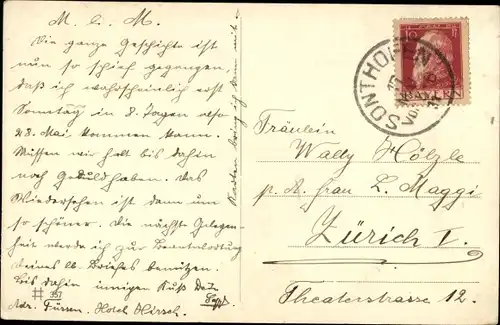 M. l. M.
Die ganze Geschichte ist
nun so schief gegangen
daß ich wahrscheinlich erst
Sonntag in 8 Tagen also
28. Mai kommen kann.
Müssen wir halt bis dahin
noch Geduld haben. Das
Wiedersehen ist dann um
so schöner. Die nächste Gelegen-
heit werde ich zur Beantwortung
deines lb. Briefes benützen.
Bis dahin innigen Kuß
# 357
Adr. Füssen. Hotel Hirsch.
Karten bring ich Dir mit
SONTHOFEN
10
BAYERN
Fräulein
Wally Hölzle
p. A. Frau L. Maggi
Zürich I.
Theaterstrasse 12.